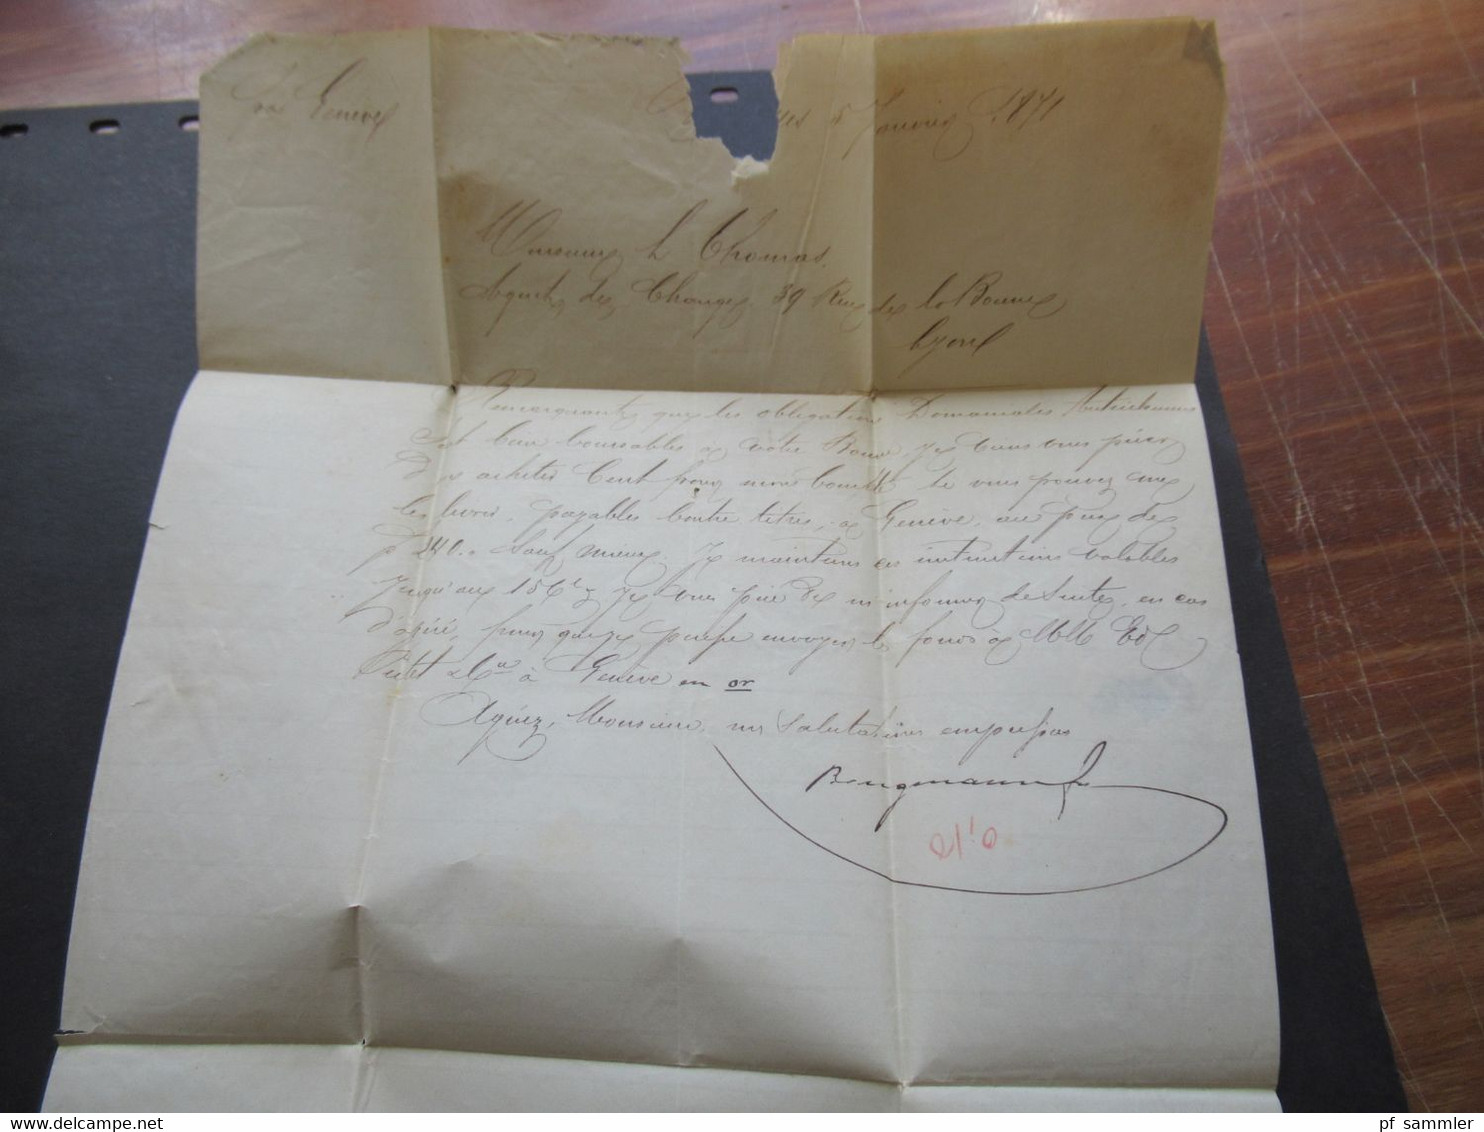 Via Genève
5 Janvier 1871
Monsieur L Thomas.
Agent de Change, 39 Rue de la Bourse
Lyon
Remarquant que les obligations Domaniales Autrichiennes
sont bien à votre Bourse, je viens vous prier
d'en acheter Cent pour mon compte si vous pouvez me
les livrer, payables contre titres, à Genève, au prix de
240.. Sauf mieux. Je maintiens ces instructions valables
jusqu'au 15 & je vous prie de m'informer de Suite, en cas
d'opéré, pour que je puisse envoyer les fonds à MM Ed
Pictet & Cie à Genève en or
Agréez, Monsieur, mes Salutations empressées
21/0
pf sammler